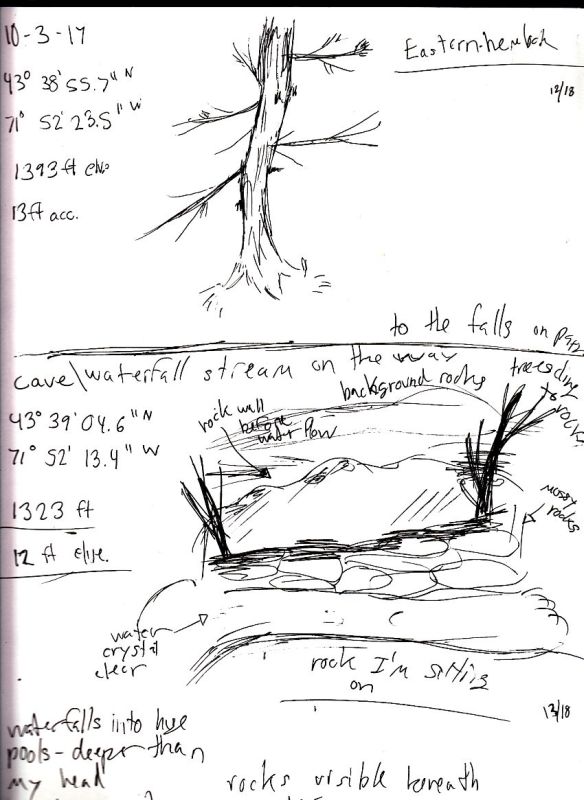 10-3-17
Eastern hemlock
43° 38' 55.7" N
12/18
71° 52' 23.5" W
1393 ft elev
13 ft acc.
to the falls on
cave\waterfall stream on the way
background rocks
trees
rocks
43° 39' 04.6" N
rock wall
before
water flow
71° 52' 13.4" W
mossy
rocks
1323 ft
12 ft
water
crystal
clear
rock I'm sitting
on
13/18
waterfalls into huge
pools - deeper than
my head
rocks visible beneath